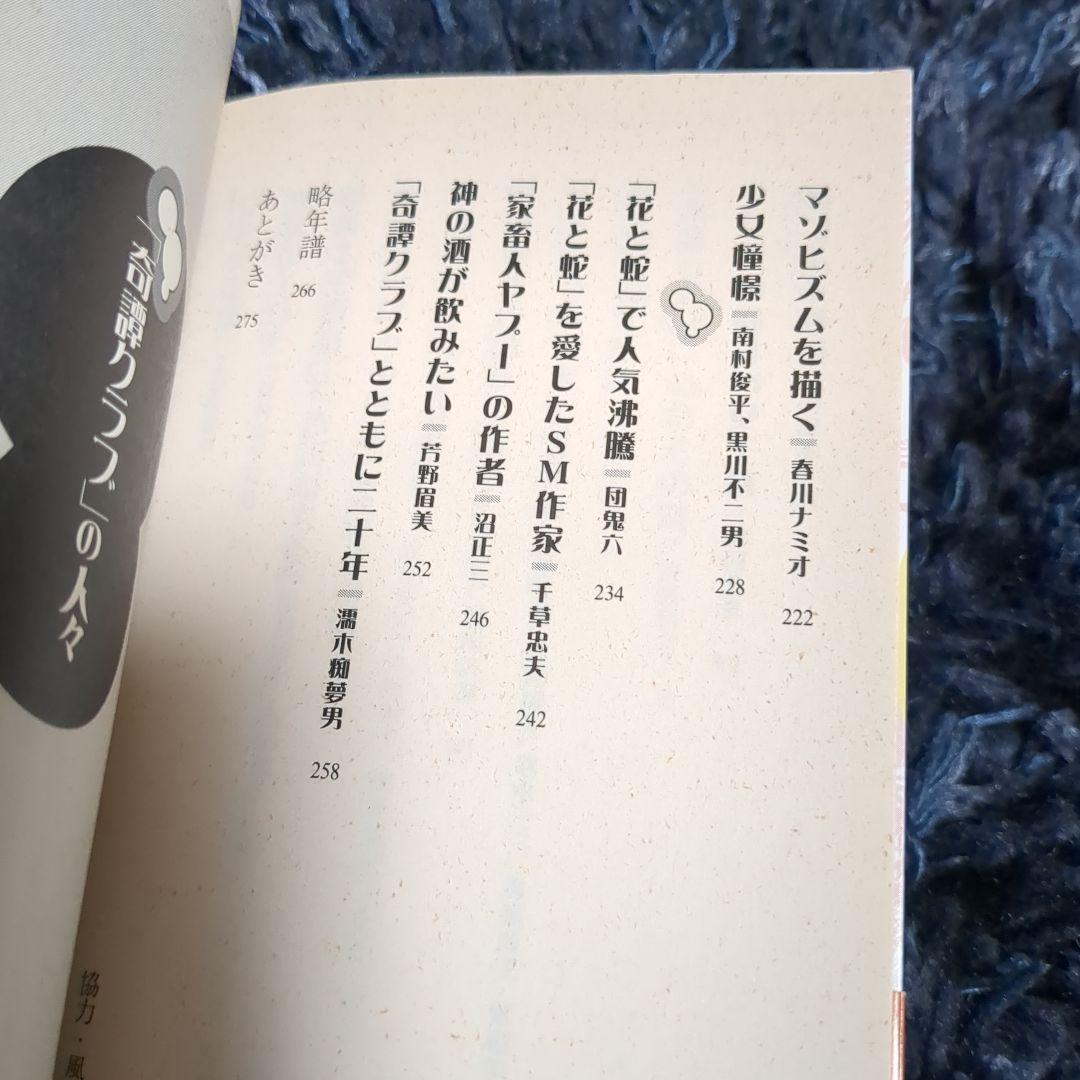 マゾヒズムを描く 春川ナミオ 222
少女憧憬 南村俊平、黒川不二男 228
「花と蛇」で人気沸騰 団鬼六 234
「花と蛇」を愛したSM作家 千草忠夫 242
「家畜人ヤプー」の作者 沼正三 246
神の酒が飲みたい 芳野眉美 252
「奇譚クラブ」とともに二十年 濡木痴夢男 258
略年譜 266
あとがき 275
「奇譚クラブ」の人々
協力・風